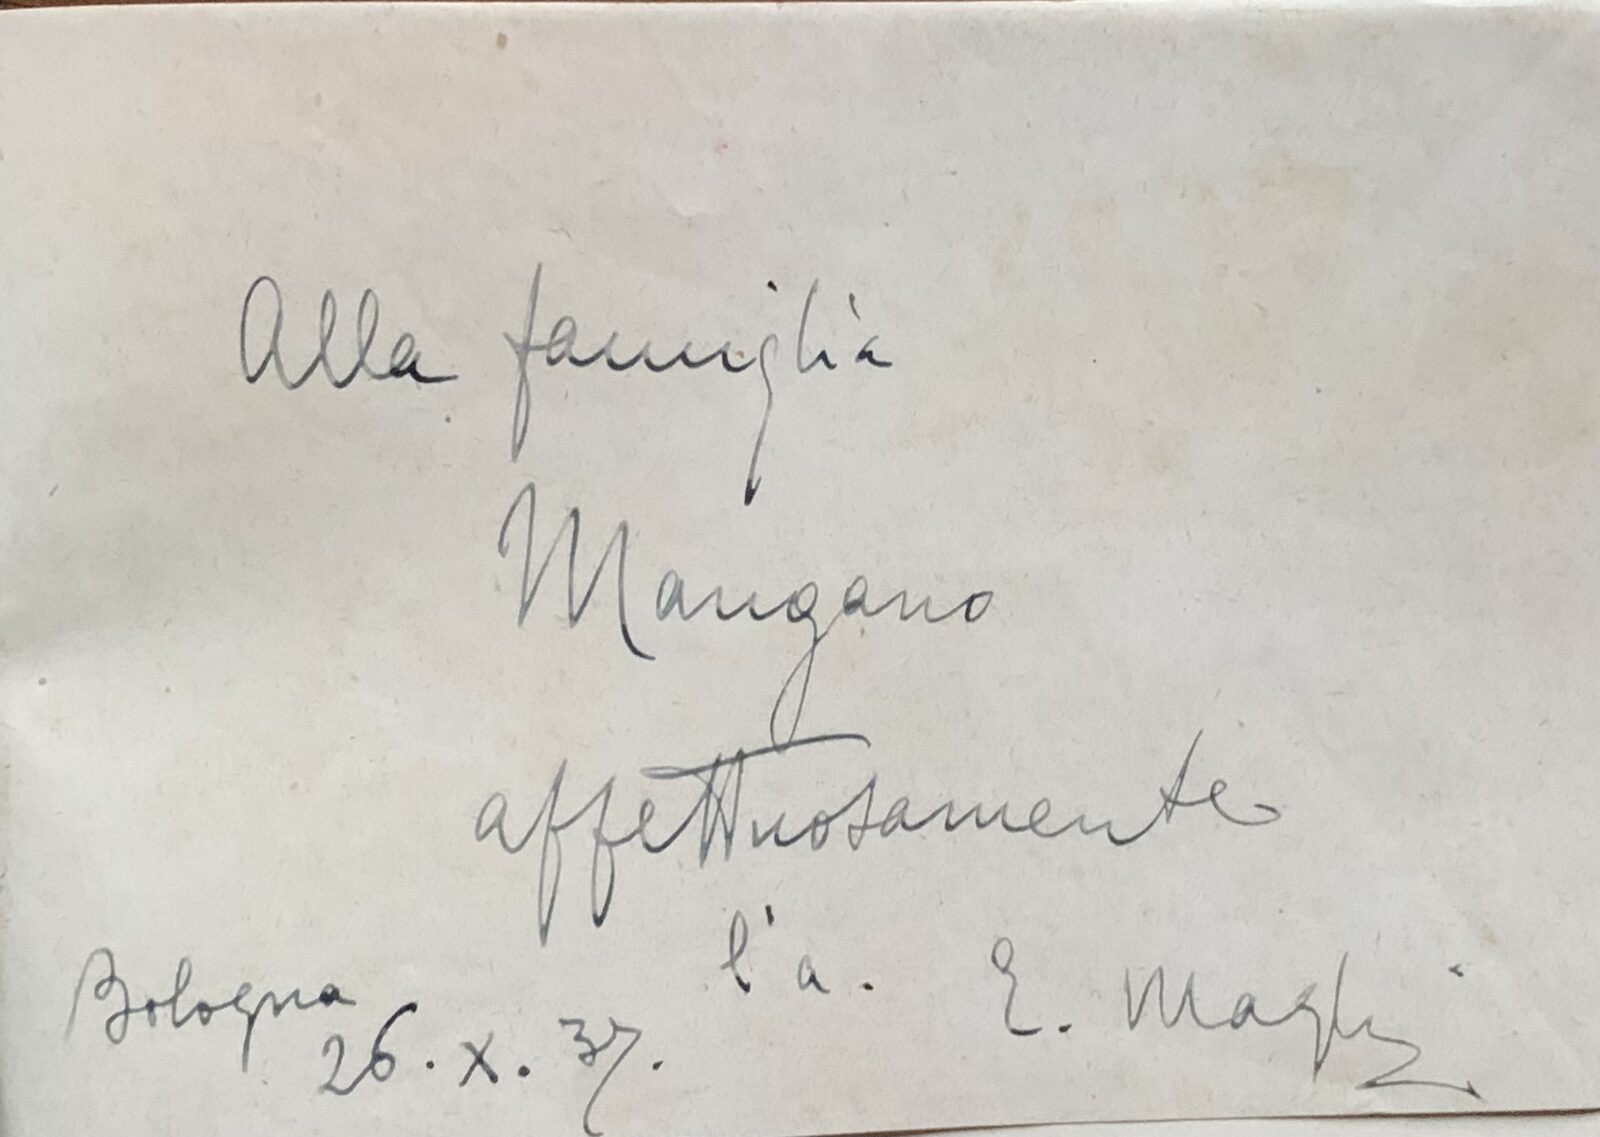 Alla famiglia
Mangano
affettuosamente
l'a. E. Magli
Bologna
26. X. 37.